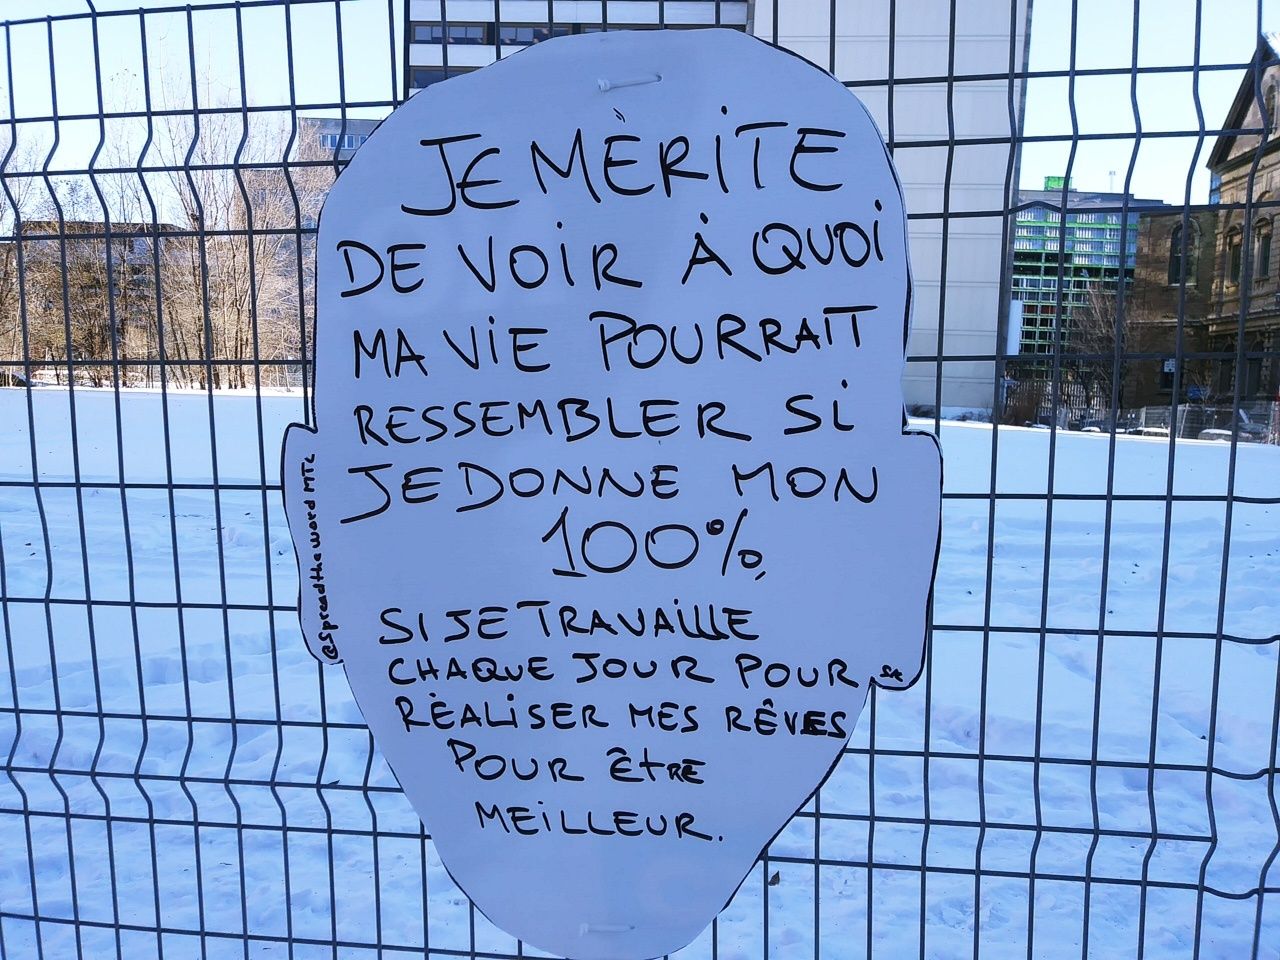 JE MÉRITE
DE VOIR À QUOI
MA VIE POURRAIT
RESSEMBLER SI
JE DONNE MON
100%,
SI JE TRAVAILLE
CHAQUE JOUR POUR
RÉALISER MES RÊVES
POUR ÊTRE
MEILLEUR.
@Spread the word MTL